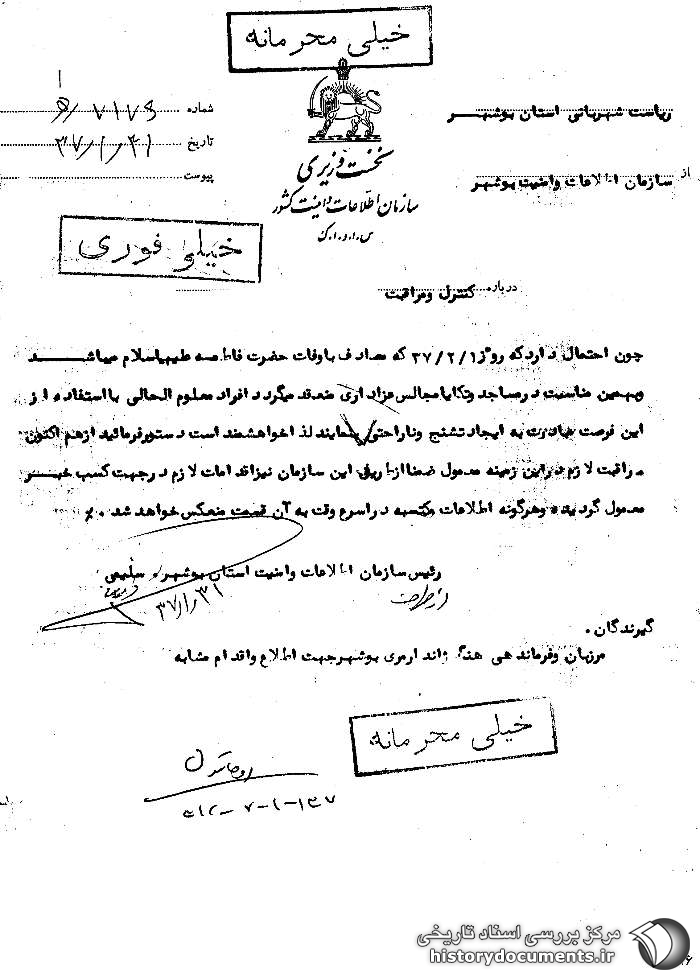 خیلی محرمانه
ریاست شهربانی استان بوشهر
شماره
از سازمان اطلاعات وامنیت بوشهر
تاریخ ۳۷/۱/۳۱
پیوست
نخست وزیری
سازمان اطلاعات و امنیت کشور
س.ا.و.ا.ک
خیلی فوری
درباره کنترل ومراقبت
چون احتمال داردکه روز ۳۷/۲/۱ که مصادف باوفات حضرت فاطمه علیهاسلام میباشد
وبهمین مناسبت درمساجد وتکایا مجالس عزاداری منعقد میگردد افراد معلوم الحالی با استفاده از
این فرصت مبادرت به ایجاد تشنج وناراحتی بنمایند لذا خواهشمند است دستورفرمائید ازهم اکنون
مراقبت لازم دراین زمینه معمول ضمنا ازطرف این سازمان نیزاقدامات لازم درجهت کسب خبر
معمول گردیده وهرگونه اطلاعات مکتسبه دراسرع وقت به آن قسمت منعکس خواهد شد .٪
رئیس سازمان اطلاعات وامنیت استان بوشهر سلیمی
از طرف
۳۷/۱/۳۱
گیرندگان .
مرزبان وفرماندهی هنگ ژاندارمری بوشهرجهت اطلاع واقدام مشابه
خیلی محرمانه
مرکز بررسی اسناد تاریخی
historydocuments.ir